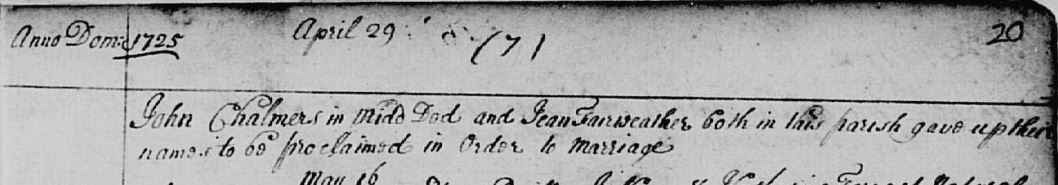 Anno Dom: 1725 April 29 (7) 20
John Chalmers in Midd Dod and Jean Fairweather both in this parish gave up their
names to be proclaimed in Order to Marriage
May 16